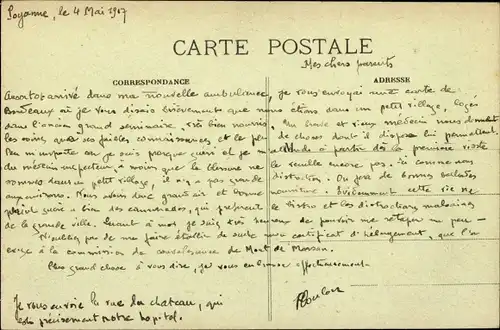 Poyanne, le 4 Mai 1917
CARTE POSTALE
Mes chers parents
CORRESPONDANCE
ADRESSE
Aussitôt arrivé dans ma nouvelle ambulance, je vous envoyai une carte de
Bordeaux où je vous disais brièvement que nous étions dans un petit village, logés
dans l'ancien grand séminaire, très bien nourris. Un brave et vieux médecin nous donnent
les soins, que ses faibles connaissances et le peu de choses dont il dispose lui permettent.
Peu m'importe car je suis presque guéri et je m'attends à partir dès la première visite
du médecin inspecteur à moins que la blessure ne se rouvre encore pas. Ici comme nous
sommes dans un petit village, il n'y a pas grande distraction. On fait de bonnes balades
aux environs. Nous avons donc grand air et bonne nourriture. Évidemment cette vie ne
plairait guère à bien des camarades, qui préfèrent le bistro et les distractions malsaines
de la grande ville. Quant à moi je suis très heureux de pouvoir me retaper un peu —
N'oubliez pas de me faire établir de suite mon certificat d'hébergement, que l'on
exige à la commission de convalescence de Mont de Marsan.
Plus grand chose à vous dire, je vous embrasse affectueusement
Je vous envoie la vue du chateau, qui
est précisément notre hopital.